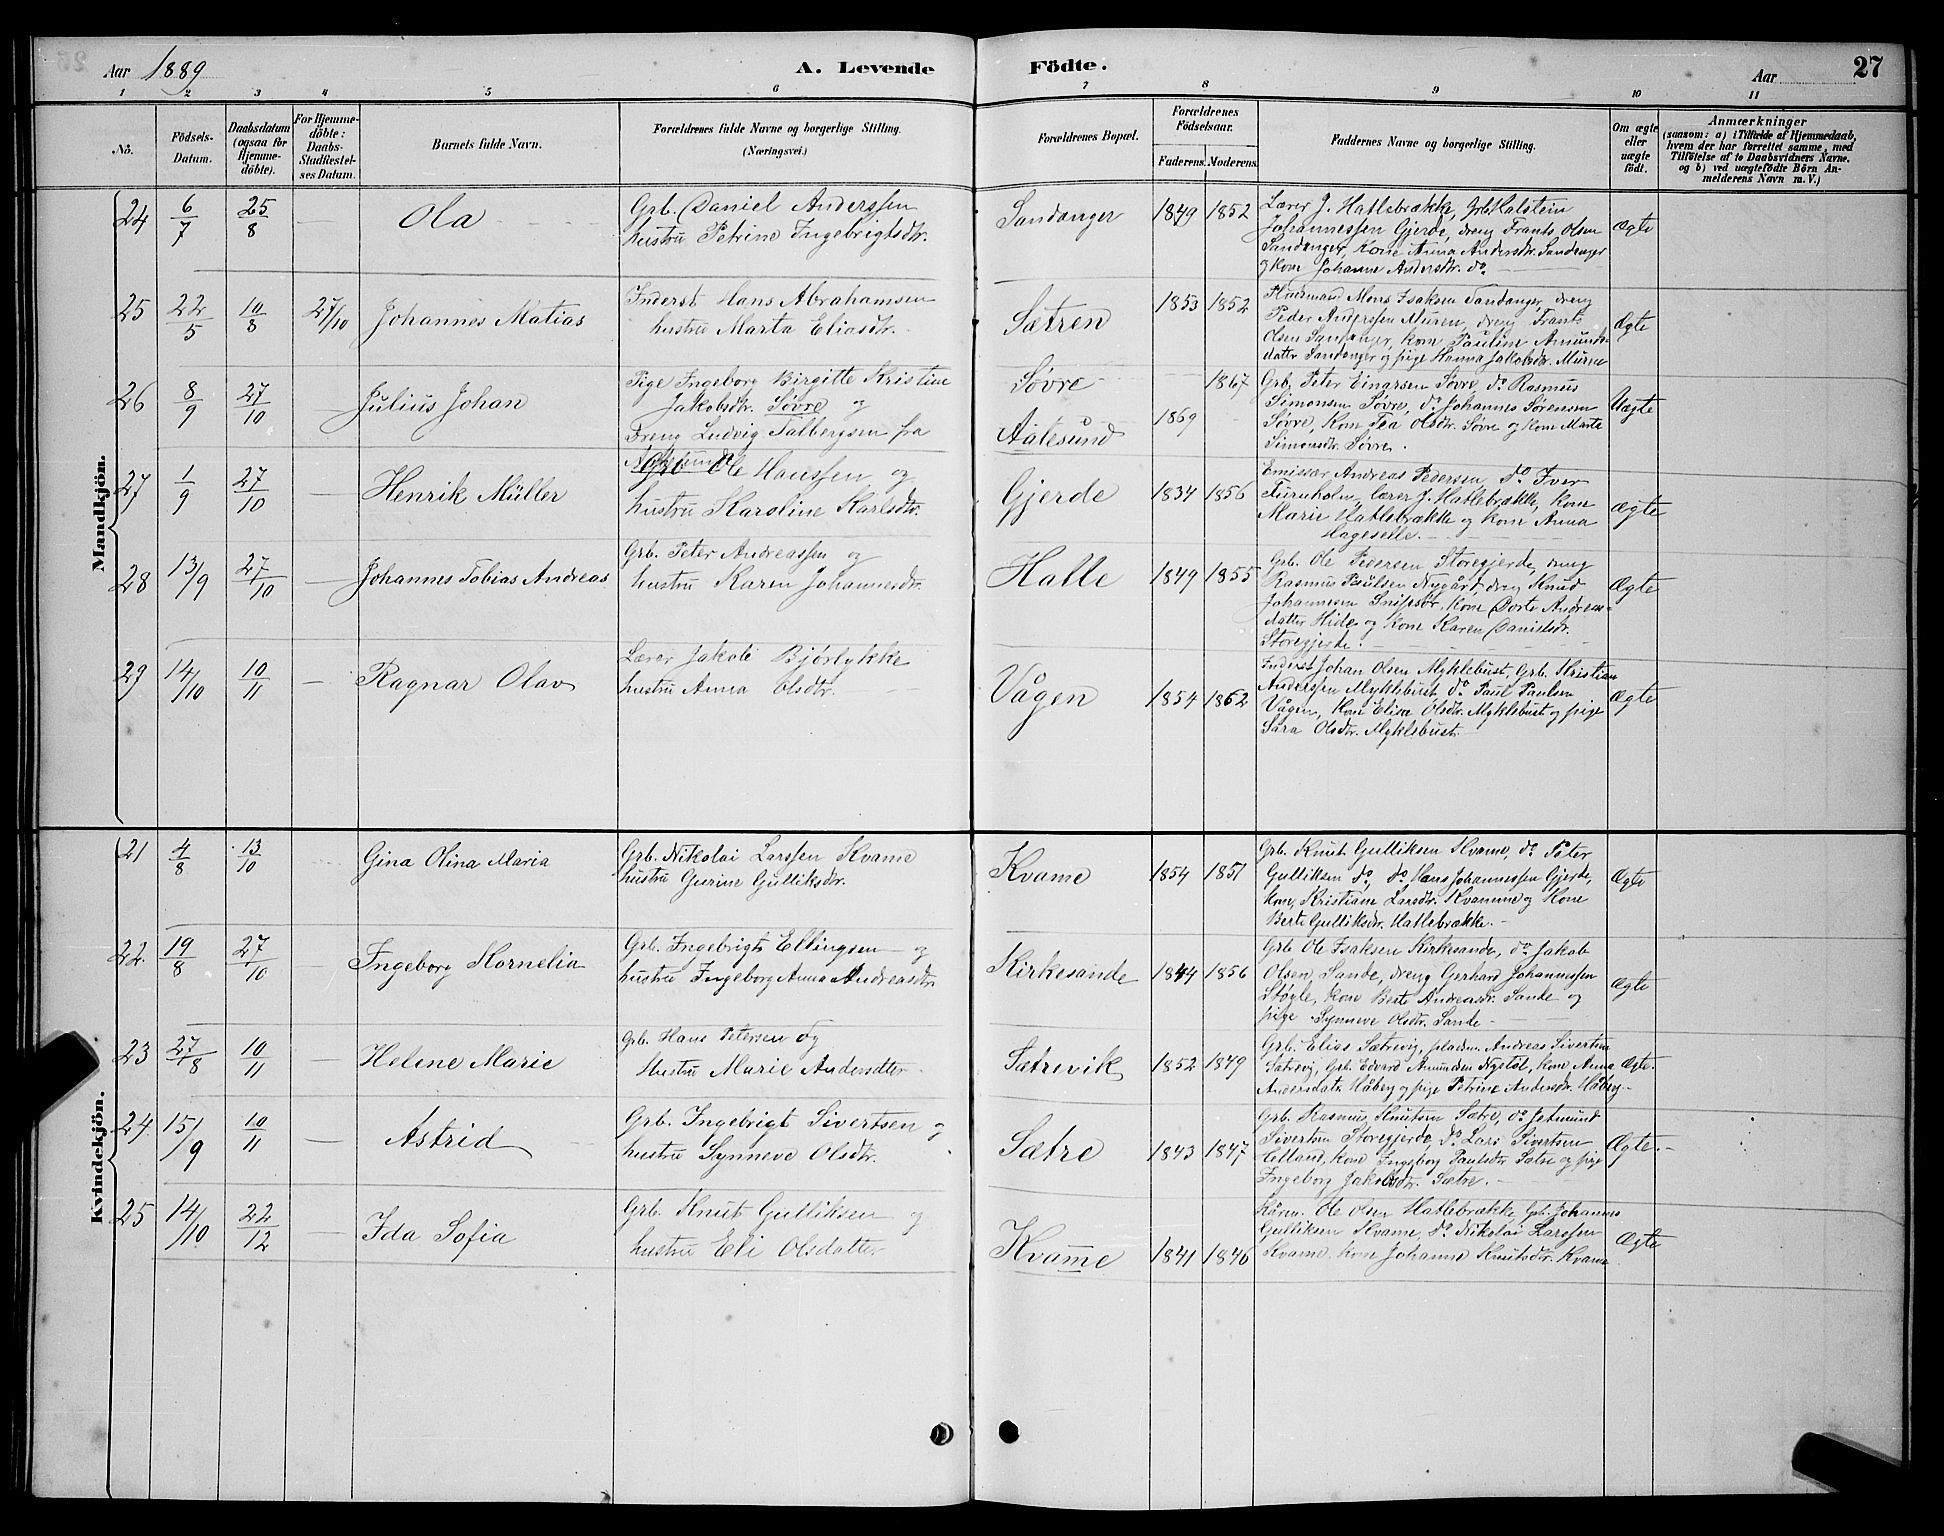 Aar 1889
A. Levende Födte.
Aar 27
1 2 3 4 5 6 7 8 9 10 11
Nö.
Födsels-
Datum.
Daabsdatum
(ogsaa for
Hjemme-
döbte).
For Hjemme-
döbte:
Daabs-
Stadfæstel-
ses Datum.
Barnets fulde Navn.
Forældrenes fulde Navne og borgerlige Stilling.
(Næringsvei.)
Forældrenes Bopæl.
Forældrenes
Födselsaar.
Faderens. Moderens.
Faddernes Navne og borgerlige Stilling.
Om ægte
eller
uægte
födt.
Anmærkninger
(saasom: a) i Tilfælde af Hjemmedaab,
hvem der har forrettet samme, med
Tilföielse af to Daabsvidners Navne.
og b) ved uægtefödte Börn An-
melderens Navn m. V.)
Mandkjön.
24 6/7 25/8 — Ola
Grb. Daniel Anderssen
hustru Petrine Ingebrigtsdtr.
Sandanger 1849 1852
Lærer J. Hatlebrække, Grb. Halstein
Johannessen Gjerde, dreng Frants Olsen
Sandanger, Kone Anna Andersdtr. Sandanger
og kone Johanne Andersdtr. do.
Ægte
25 22/5 10/8 27/10 Johannes Matias
Inderst Hans Abrahamsen
hustru Marta Eliasdtr.
Sætren 1853 1852
Huusmand Mons Isaksen Sandanger, dreng
Peder Anderssen Muren, dreng Frants
Olsen Sandanger, kone Pauline Amunds-
datter Sandanger og pige Hanna Jakobsdtr. Muren
Ægte
26 8/9 27/10 Julius Johan
Pige Ingeborg Birgitte Kristine
Jakobsdtr. Søvre og
Dreng Ludvig Talbergsen fra
Aalesund
Søvre 1867
Aalesund 1869
Grb. Peter Einarsen Søvre, do Rasmus
Simonsen Søvre, do Johannes Sørensen
Søvre, Kone Tea Olsdtr. Søvre og kone Marte
Simonsdtr. Søvre.
Uægte
27 1/9 27/10 — Henrik Müller
Grb. Ole Hanssen og
hustru Karoline Karlsdtr.
Gjerde 1834 1856
Emissær Andreas Pedersen, do Iver
Furuholm, lærer J. Hatlebrække, kone
Marie Hatlebrække og kone Anna
Hageselle.
ægte
28 13/9 27/10 — Johannes Tobias Andreas
Grb. Peter Andreassen og
hustru Karen Johannesdtr.
Halle 1849 1855
Grb. Ole Pedersen Storegjerde, dreng
Rasmus Paulsen Nygård, dreng Knud
Johannesen Snipsør, kone Dorte Andreas-
datter Hide og kone Karen Danielsdr.
Storegjerde.
Ægte
29 14/10 10/11 — Ragnar Olav
Lærer Jakob Bjørlykke
hustru Anna Olsdtr.
Vågen 1854 1862
Inderst Johan Olsen Myklebust, Grb. Kristian
Anderssen Myklebust, do Paul Paulsen
Vågen, Kone Elisa Olsdtr. Myklebust og pige
Sara Olsdtr. Myklebust.
Ægte
Kvindekjön.
21 4/8 13/10 Gina Olina Maria
Grb. Nikolai Larssen Kvame
hustru Gurine Gulliksdtr.
Kvame 1854 1851
Grb. Knut Gulliksen Kvame, do Peter
Gulliksen do, do Hans Johannessen Gjerde,
kone, Kristiane Larsdtr. Kvamme og Kone
Berte Gulliksdtr. Hatlebrække.
Ægte
22 19/8 27/10 Ingeborg Kornelia
Grb. Ingebrigt Ellingsen og
hustru Ingeborg Anna Andreasdtr.
Kirkesande 1844 1856
Grb. Ole Isaksen Kirkesande, do Jakob
Olsen Sande, dreng Gerhard Johannessen
Støyle, kone Berte Andreasdr. Sande og
pige Synneve Olsdtr. Sande
Ægte
23 27/8 10/11 — Helene Marie
Grb. Hans Petersen og
Hustru Marie Andersdtter
Sætrevik 1852 1849
Grb. Elias Sætrevig, pladsm. Andreas Sivertsen
Sætrevig, Grb. Edvard Amundsen Nystöl, kone Anna
Andersdatr. Håberg og pige Petrine Andersdr. Håberg
Ægte.
24 15/9 10/11 — Astrid
Grb. Ingebrigt Sivertsen og
hustru Synneve Olsdtr.
Sætre 1843 1847
Grb. Rasmus Knutsen Sætre, do Jetmund
Sivertsen Storegjerde, do Lars Sivertsen
Eltland, kone Ingeborg Paulsdtr Sætre og pige
Ingeborg Jakobsdtr. Sætre.
Ægte.
25 14/10 22/12 — Ida Sofia
Grb. Knut Gulliksen og
hustru Eli Olsdatter
Kvamme 1841 1846
Ole Olsen Hatlebrække, Grb. Johannes
Gulliksen Kvame, do Nikolai Larssen
Kvame, kone Johanne Knutsdtr. Kvame
Ægte